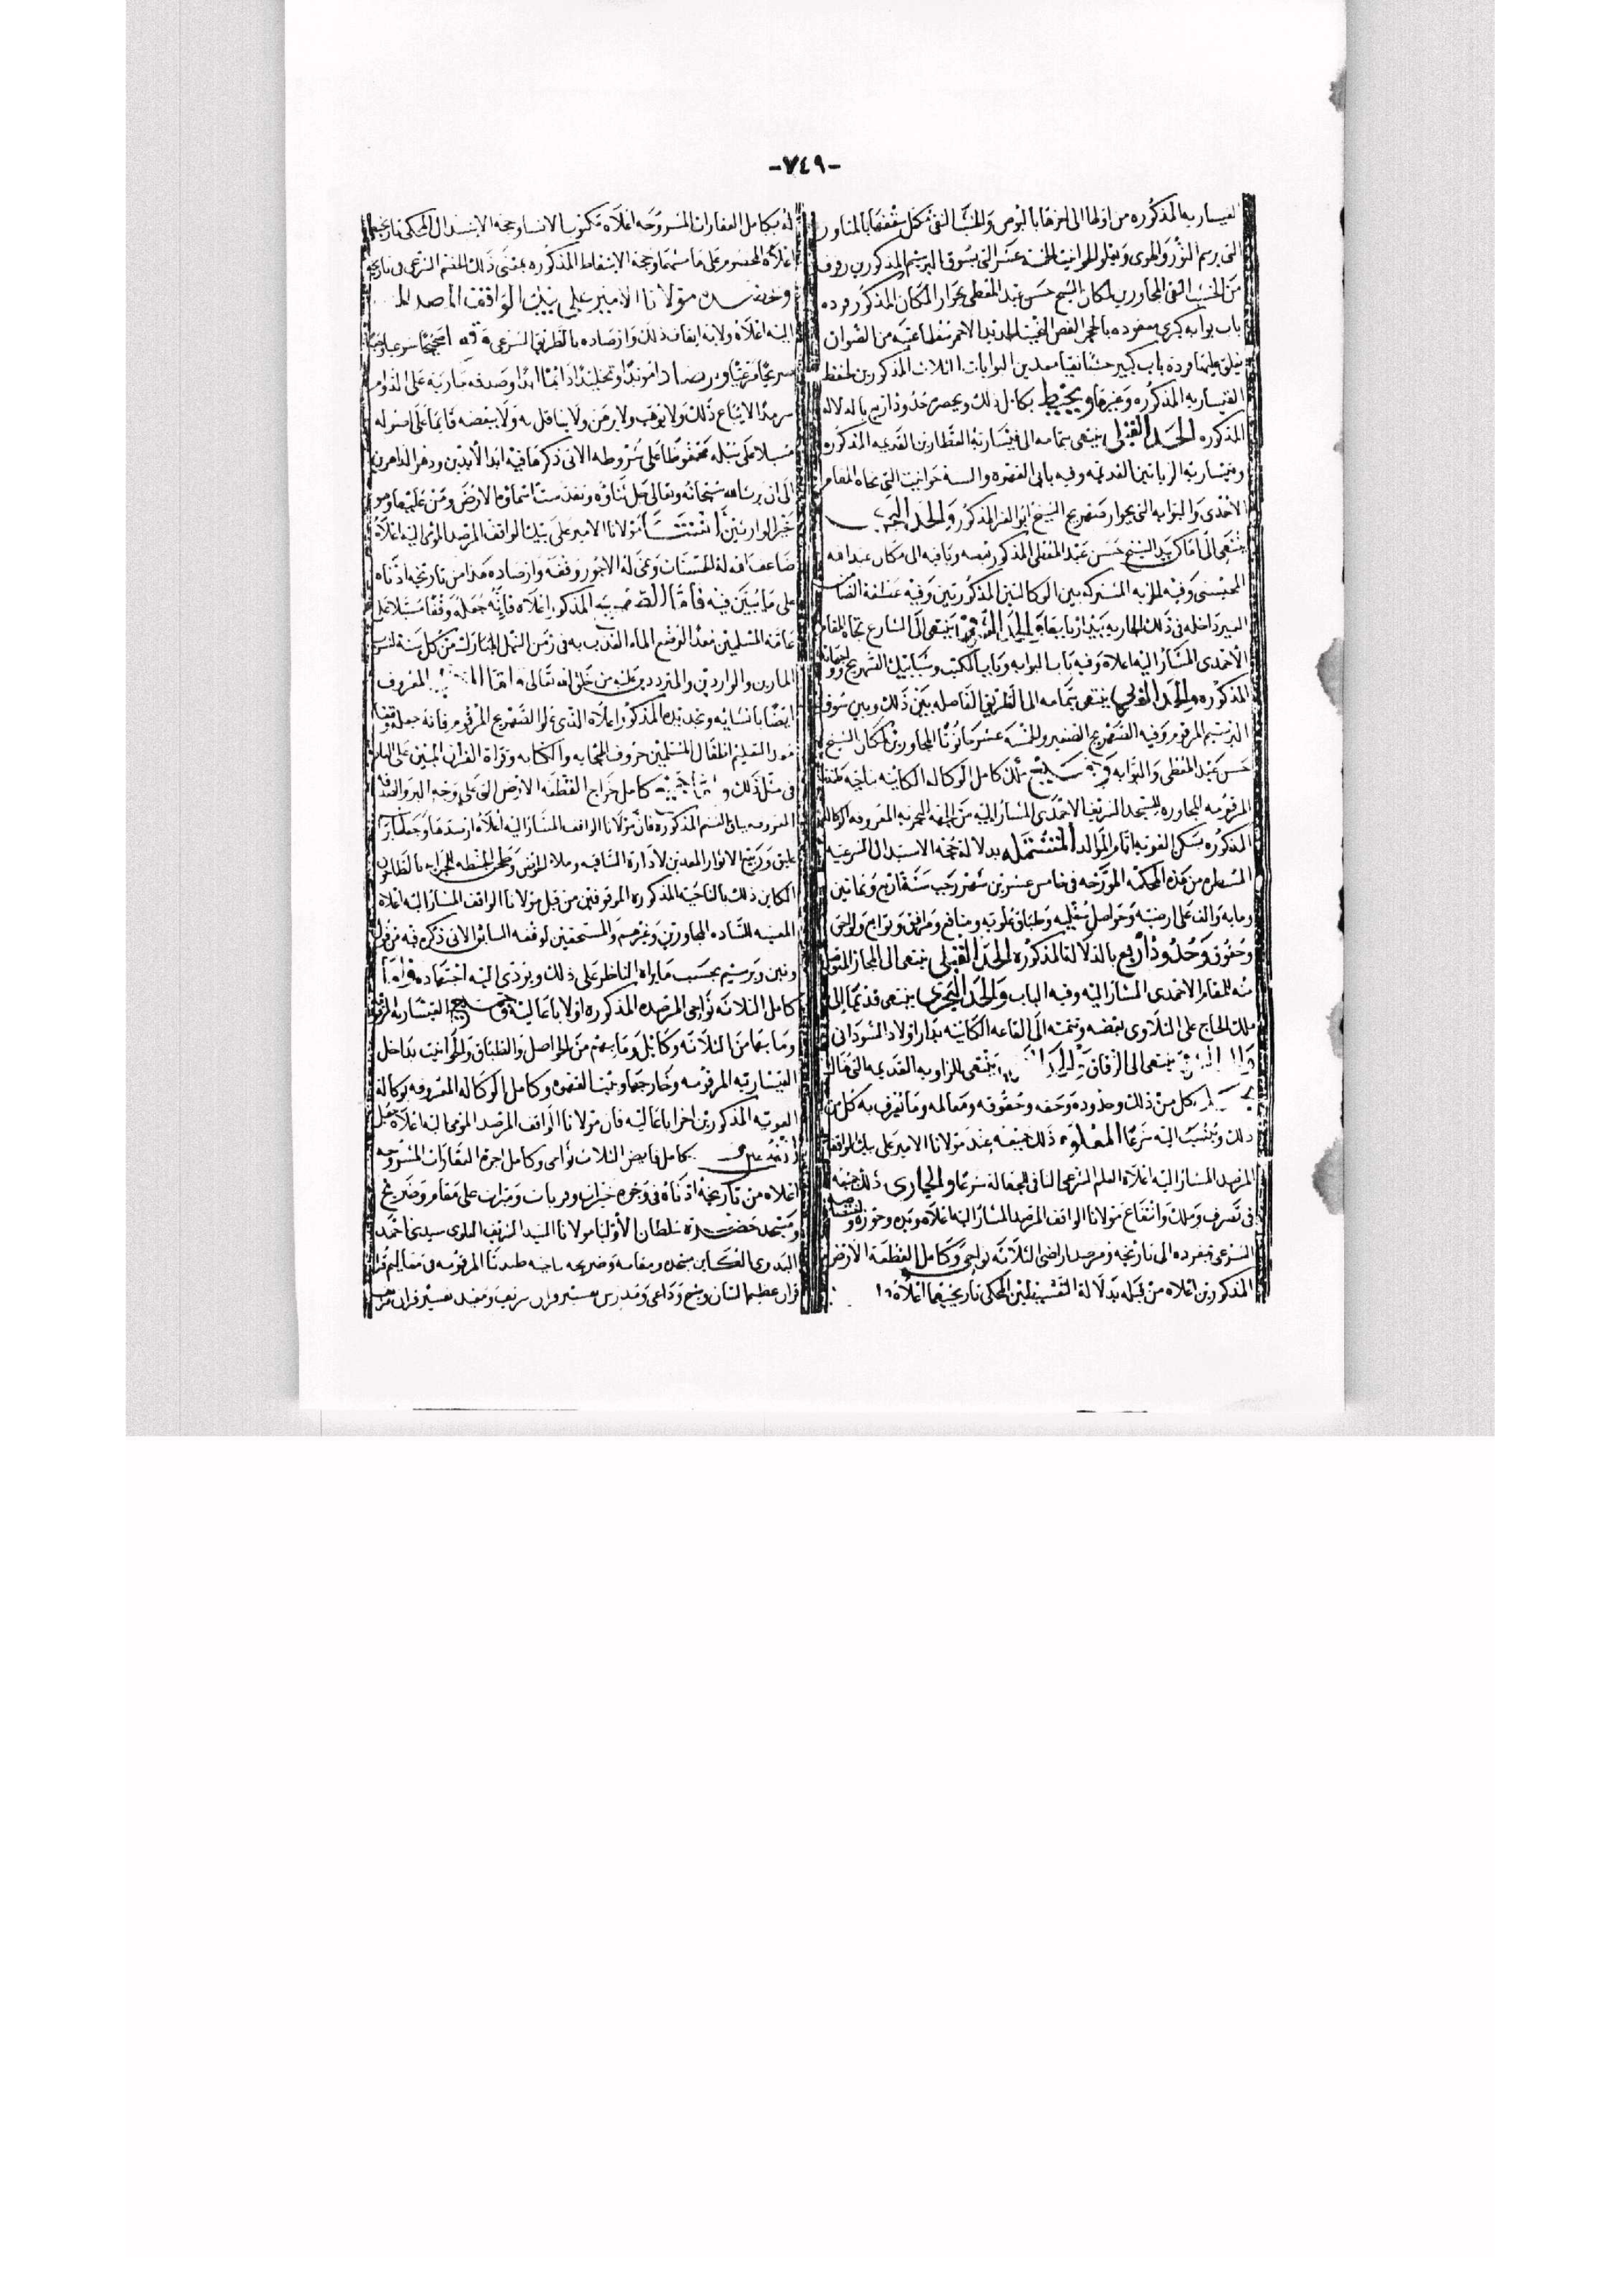 -٧٤٩-
القيساريه المذكوره من اولها الى اخرها بالبوص والخشب النقى مكمل سقفها بالمناور
التى برسم النور والهوى ويعلو الحوانيت الخمسة عشر التى بسوق البرسيم المذكورين رفوف
من الخشب النقى المجاورين لمكان الشيخ حسن عبد المعطى بجوار المكان المذكور فرده
باب بوابه كبرى معقوده بالحجر الفص النحيت الجديد الاحمر سفلها عتبه من الصوان
يغلق عليها فرده باب كبير خشبا نقيا معد من البوابات الثلاث المذكورين لحفظ
القيساريه المذكوره وغيرها ويحيط بكامل ذلك ويحصره حدود اربع بالدلاله
المذكوره الحد القبلى ينتهى بتمامه الى قيسارية العطارين القديمه المذكوره
وقيسارية الزياتين القديمه وفيه باب القصره والستة حوانيت التى تجاه المقام
الاحمدى والبوابه التى بجوار صهريج الشيخ ابو الفر المذكور والحد البحرى
ينتهى الى اماكن بيد الشيخ حسن عبد المعطى المذكور بعضه وباقيه الى مكان عبد الله
المحبسى وفيه المزيه المشتركه بين الوكالتين المذكورتين وفيه عطفة
الغير داخله فى ذلك الجاريه بيد اربابها والحد الشرقى ينتهى الى الشارع تجاه المقام
الاحمدى المشار اليه اعلاه وفيه باب البوابه وباب المكتب وشبابيك الصهريج وواجهاته
المذكوره والحد الغربى ينتهى بتمامه الى الطريق الفاصله بين ذلك وبين سوق
البرسيم المرقوم وفيه الصهريج الصغير والخمسة عشر حانوتا المجاورين لمكان الشيخ
حسن عبد المعطى والبوابه وجميع بناء كامل الوكاله الكاينه بناحية طندتا
المرقومه المجاوره للمسجد الشريف الاحمدى المشار اليه من الجهة البحريه المعروفه بوكالة
المذكوره بسكن الغوريه ايام المولد المشتمله بدلالة حجة الاستبدال الشرعيه
المسطره من هذه المحكمة المؤرخه فى خامس عشرين شهر رجب سنة اربع وثمانين
ومايه والف على ارضيه وحواصل سفليه وطباق علويه ومنافع ومرافق وتوابع ولواحق
وحقوق وحدود اربع بالدلالة المذكوره الحد القبلى ينتهى الى المجاز المتوصل
منه للمقام الاحمدى المشار اليه وفيه الباب والحد البحرى ينتهى قديما الى
ملك الحاج على التلاوى بعضه وتتمته الى القاعه الكاينه بدار اولاد السودانى
والحد الشرقى ينتهى الى الزقاق والحد الغربى ينتهى للزاويه القديمه التى هناك
بحد كل من ذلك وحدوده وحقه وحقوقه ومعالمه وما يعرف به كل من
ذلك وينسب اليه شرعا المعلوم ذلك جميعه عند مولانا الامير على بيك الواقف
المرصد المشار اليه اعلاه العلم الشرعى النافى للجهالة شرعا والجارى ذلك جميعه
فى تصرف وملك وانتفاع مولانا الواقف المرصد المشار اليه اعلاه وبيده وحوزه
الشرعى بمفرده الى تاريخه ومرصد اراضى الثلاثه نواحى وكامل القطعة الارض
المذكورين اعلاه من قبله بدلالة التقسيطين المحكى تاريخيهما اعلاه
له بكامل العقارات المشروحه اعلاه مكتوب الانشا وحجة الاستبدال المحكى تاريخهم
اعلاه المخصوم على هامشهما وحجة الاسقاط المذكوره بمعنى ذلك الخصم الشرعى فى تاريخه
مولانا الامير على بيك الواقف المرصد المشار
اليه اعلاه ولاية ايقاف ذلك وارصاده بالطريق الشرعى وقفا صحيحا شرعيا وحبسا
صريحا مرعيا وارصادا مؤبدا وتخليدا دائما ابدا وصدقه جاريه على الدوام
سرمدا لا يباع ذلك ولا يوهب ولا يرهن ولا يناقل به ولا ببعضه قايما على اصوله
مسبلا على سبله محفوظا على شروطه الاتى ذكرها فيه ابد الابدين ودهر الداهرين
الى ان يرث الله سبحانه وتعالى جل ثناؤه وتقدست اسماؤه الارض ومن عليها وهو
خير الوارثين انشا مولانا الامير على بيك الواقف المرصد المومى اليه اعلاه
ضاعف الله له الحسنات ونمى له الاجور وقفه وارصاده هذا من تاريخه ادناه
على ما يبين فيه فاما الصهريج المذكور اعلاه فانه جعله وقفا مسبلا على
عامة المسلمين معدا لوضع الماء العذب به فى زمن النيل المبارك من كل سنة لشرب
المارين والواردين والمترددين عليه من خلق الله تعالى واما المكتب المعروف
ايضا بانشايه وتجديده المذكور اعلاه الذى علو الصهريج المرقوم فانه جعله
معد التعليم اطفال المسلمين حروف الهجايه والكتابه وقراة القران المبين على
فى مثل ذلك واما كامل خراج القطعة الارض التى على وجه البر والصدقه
المذكوره فان مولانا الواقف المشار اليه اعلاه ارصدها وجعلها
عليق وربيع الاثوار المعدين لادارة الساقيه وملا الحوض وطحن الحنطه للجرايه بالطاحون
الكاين ذلك بالناحيه المذكوره الموقوفين من قبل مولانا الواقف المشار اليه اعلاه
المعينه للساده المجاورين وغيرهم والمستحقين لوقفه الساير الاتى ذكره فيه من فول
وتبن وبرسيم بحسب ما يراه الناظر على ذلك ويؤدى اليه اجتهاده واما
كامل الثلاثه نواحى المرصده المذكوره اولا باعاليه وجميع القيساريه المرقومه
وما بها من الثلاثه وكايل وما بهم من الحواصل والطباق والحوانيت بداخل
القيساريه المرقومه وخارجها وبيت القهوه وكامل الوكاله المعروفه بوكالة
الغوريه المذكورين اخرا باعاليه فان مولانا الواقف المرصد المومى اليه اعلاه جعل
كامل فايض الثلاث نواحى وكامل اجرة العقارات المشروحه
اعلاه من تاريخه ادناه فى وجوه خيرات وقربات ومبرات على مقام وضريح
ومسجد حضرة سلطان الاوليا مولانا السيد الشريف العلوى سيدى احمد
البدوى الكاين مسجده ومقامه وضريحه بناحية طندتا المرقومه فى معاليم قراة
قران عظيم الشان وشيخ وداعى ومدرس تفسير قران شريف ومعيد تفسير قران